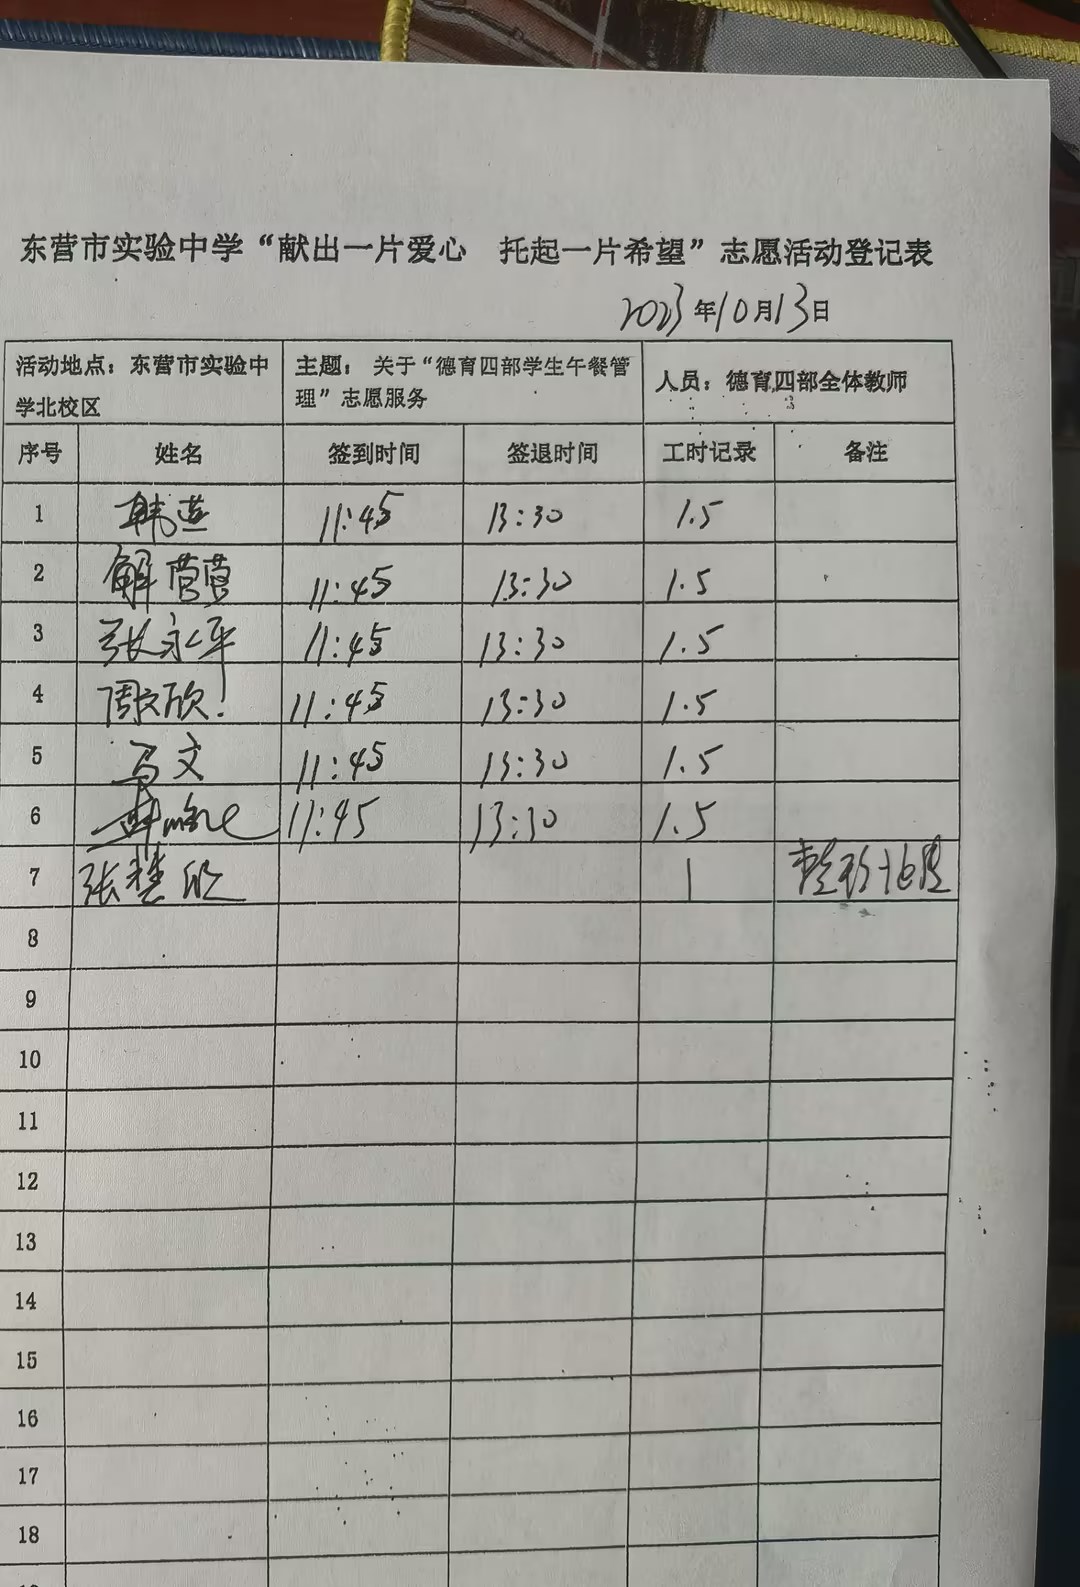 东营市实验中学“献出一片爱心 托起一片希望”志愿活动登记表
2023年10月13日
活动地点：东营市实验中学北校区 主题：关于“德育四部学生午餐管理”志愿服务 人员：德育四部全体教师
序号 姓名 签到时间 签退时间 工时记录 备注
1 韩燕 11:45 13:30 1.5
2 解营营 11:45 13:30 1.5
3 张永平 11:45 13:30 1.5
4 周文欣 11:45 13:30 1.5
5 马文 11:45 13:30 1.5
6 11:45 13:30 1.5
7 张慧欣 1
8
9
10
11
12
13
14
15
16
17
18